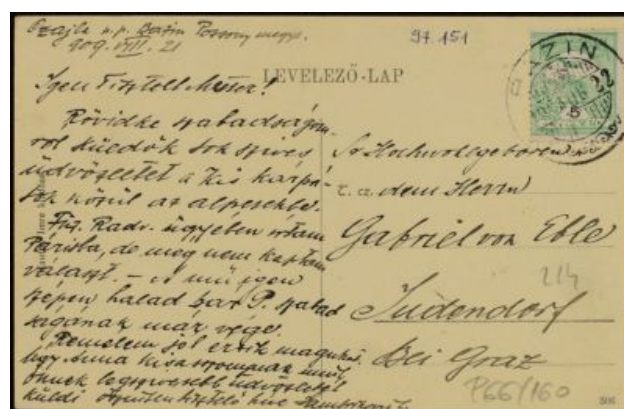 Szajla u.p. Bazin Pozsony megye.
909. VIII. 21
97.151
BAZIN
22
5
LEVELEZŐ-LAP
Igen Tisztelt Mester!
Rövidke szabadságom-
ról küldök sok szives
üdvözletet a kis kárpá-
tok közül az alpesekbe.
Füz. Radv. ügyében irtam
Párisba, de még nem kaptam
választ. – A mű igen
szépen halad bár P. szabad
ságának már vége.
Remélem jól érzik magukat
úgy Anna kisasszonynak mint
önnek legszivesebb üdvözletét
küldi őszintén tisztelő hive
Sr Hochwolgeboren
T. cz. dem Herrn
Gabriel von Eble
Judendorf
Bei Graz
214
P66/160